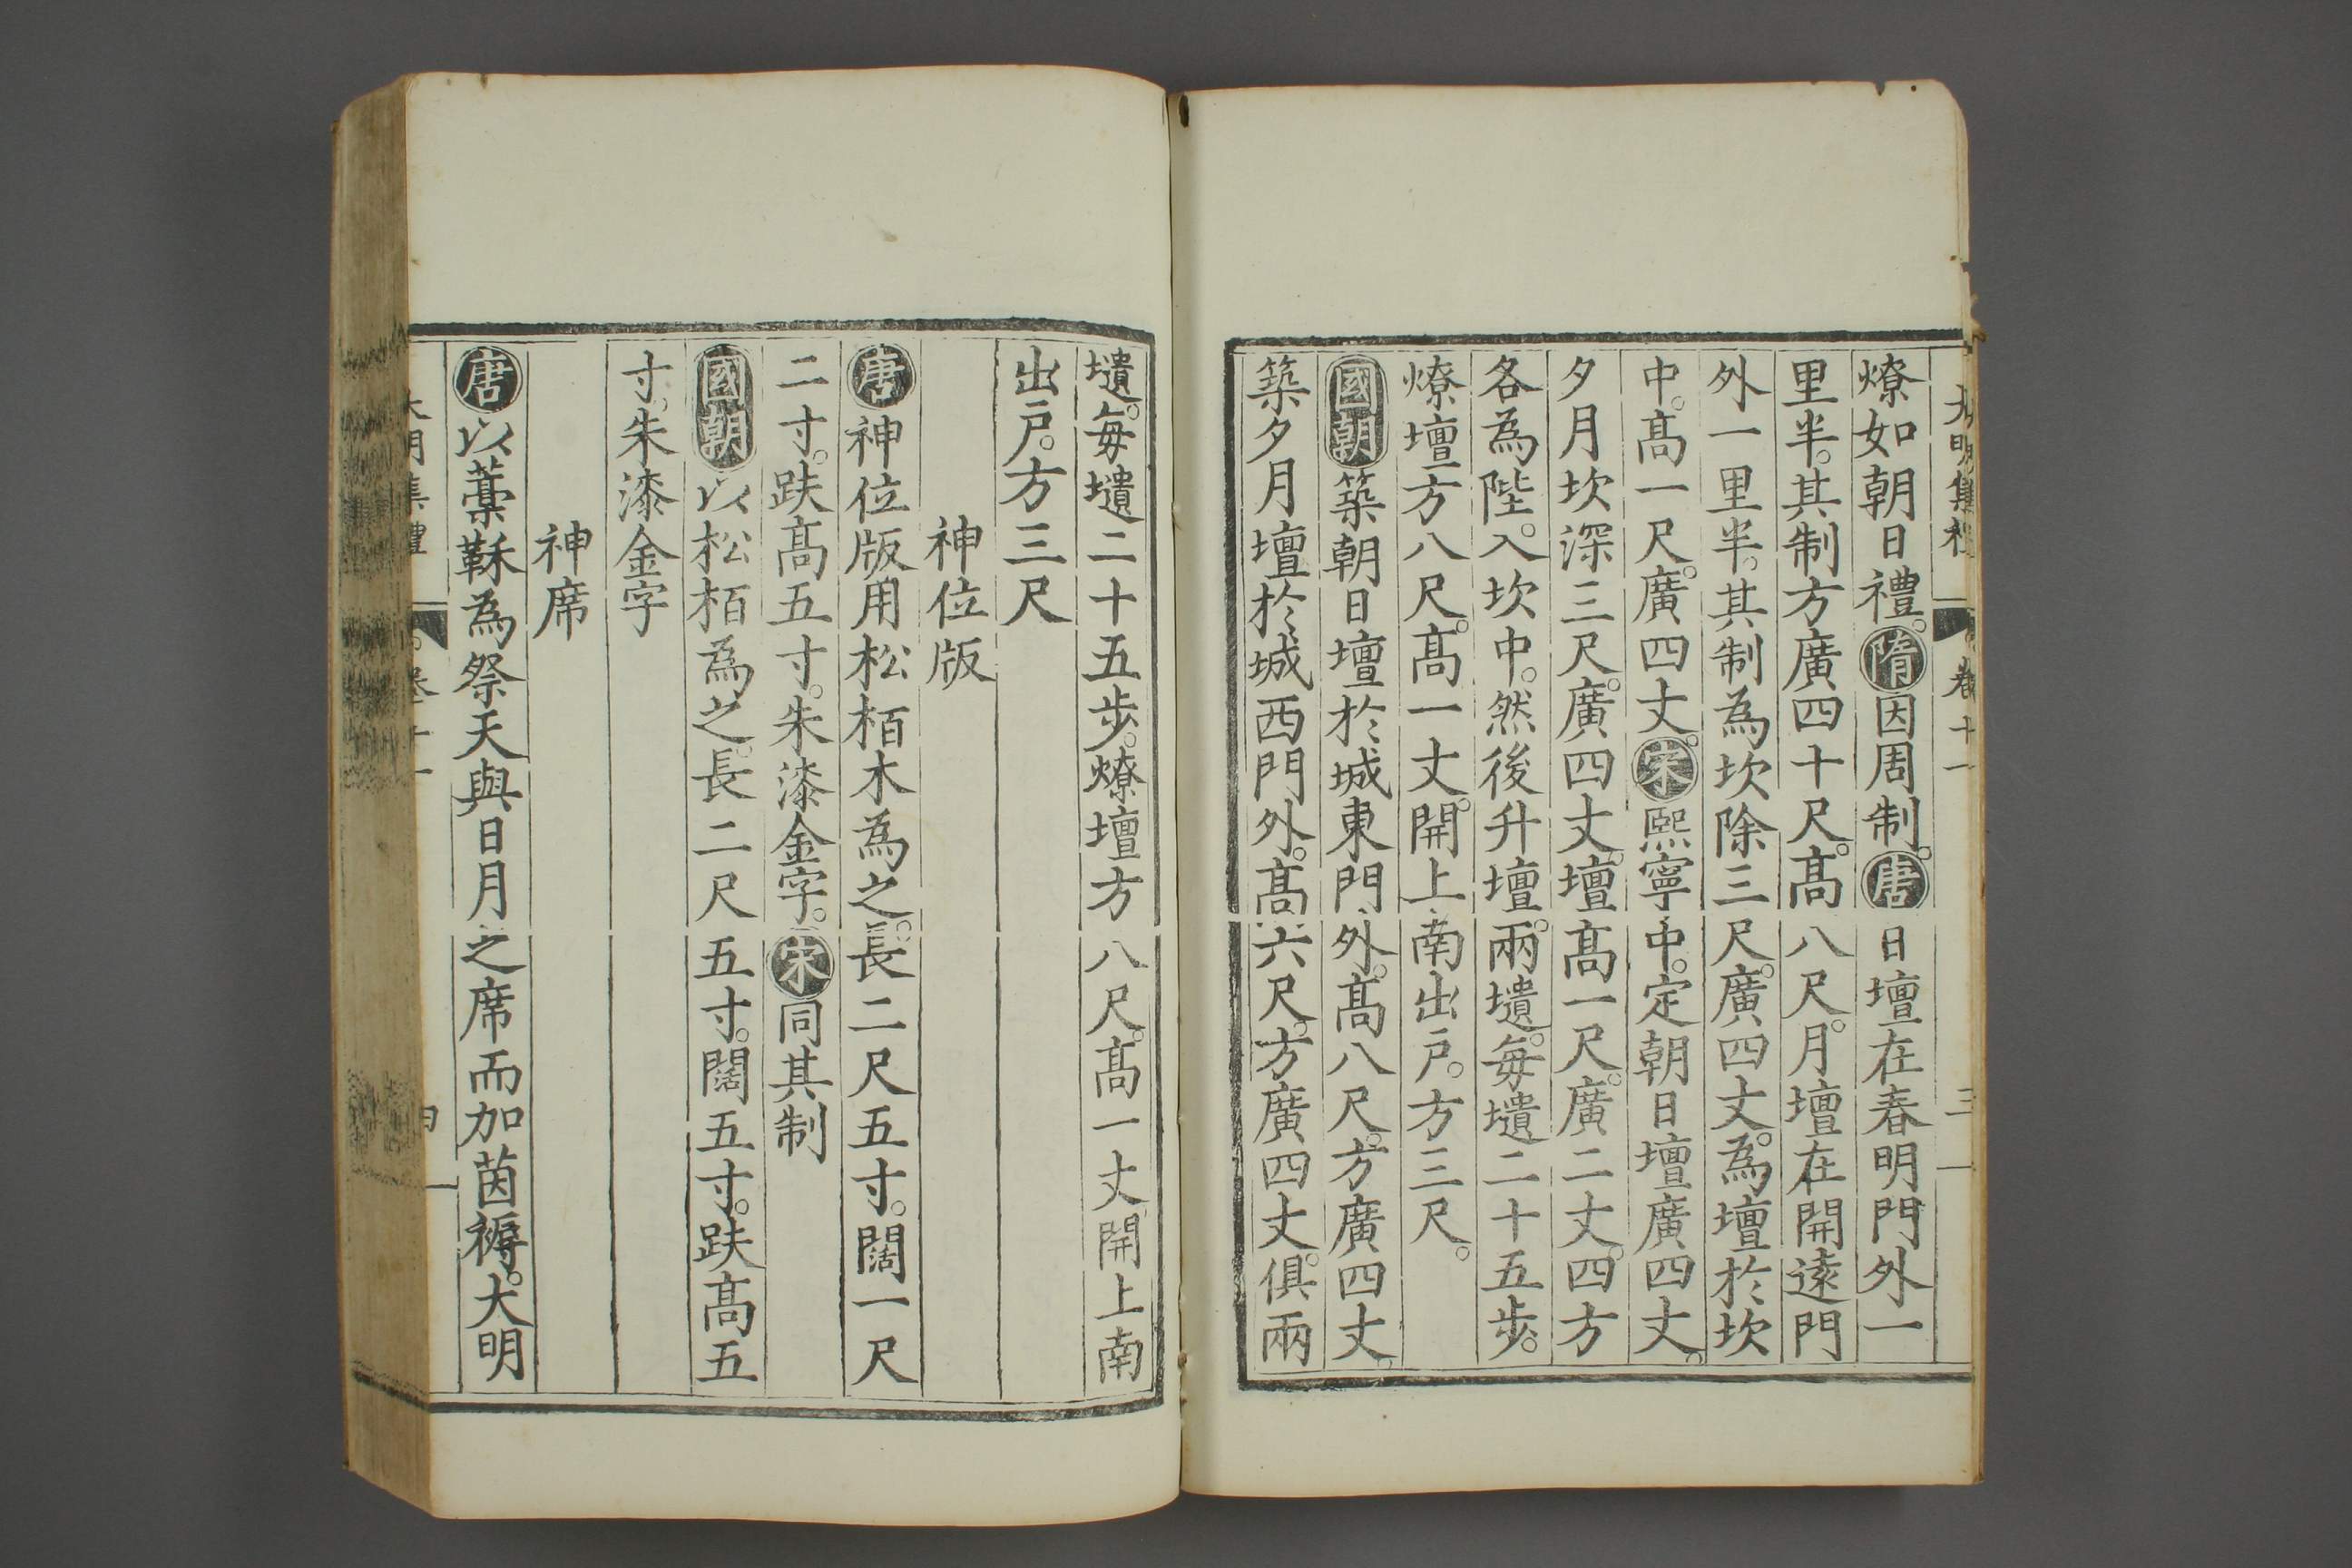 大明集禮 卷十一 三
燎如朝日禮。隋因周制。唐日壇在春明門外一
里半。其制方廣四十尺。髙八尺。月壇在開遠門
外一里半。其制為坎除三尺。廣四丈。為壇於坎
中。髙一尺。廣四丈。宋熙寧中。定朝日壇廣四丈。
夕月坎深三尺。廣四丈。壇髙一尺。廣二丈。四方
各為陛。入坎中。然後升壇。兩壝。每壝二十五步。
燎壇方八尺。髙一丈。開上南出戶。方三尺。
國朝築朝日壇於城東門外。髙八尺。方廣四丈。
築夕月壇於城西門外。髙六尺。方廣四丈。俱兩
壝。每壝二十五步。燎壇方八尺。髙一丈開上南
出戶。方三尺
神位版
唐神位版用松栢木為之。長二尺五寸。闊一尺
二寸。趺髙五寸。朱漆金字。宋同其制
國朝以松栢為之。長二尺五寸。闊五寸。趺髙五
寸。朱漆金字
神席
唐以藁鞂為祭天與日月之席而加茵褥。大明
大明集禮 卷十一 四